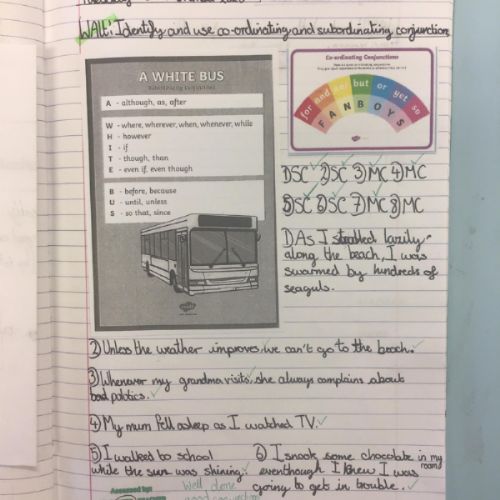 WALT: Identify and use co-ordinating and subordinating conjunctions
A WHITE BUS
Subordinating Conjunctions
A - although, as, after
W - where, wherever, when, whenever, while
H - however
I - if
T - though, than
E - even if, even though
B - before, because
U - until, unless
S - so that, since
Co-ordinating Conjunctions
for and nor but or yet so
F A N B O Y S
1) SC 2) SC 3) MC 4) MC
5) SC 6) SC 7) MC 8) MC
1) As I strolled lazily
along the beach, I was
swarmed by hundreds of
seaguls.
2) Unless the weather improves, we can't go to the beach.
3) Whenever my grandma visits, she always complains about
bad politics.
4) My mum fell asleep as I watched TV.
5) I walked to school
while the sun was shining.
6) I snook some chocolate in my room
eventhough I knew I was
going to get in trouble.
Assessed by:
Well done
good